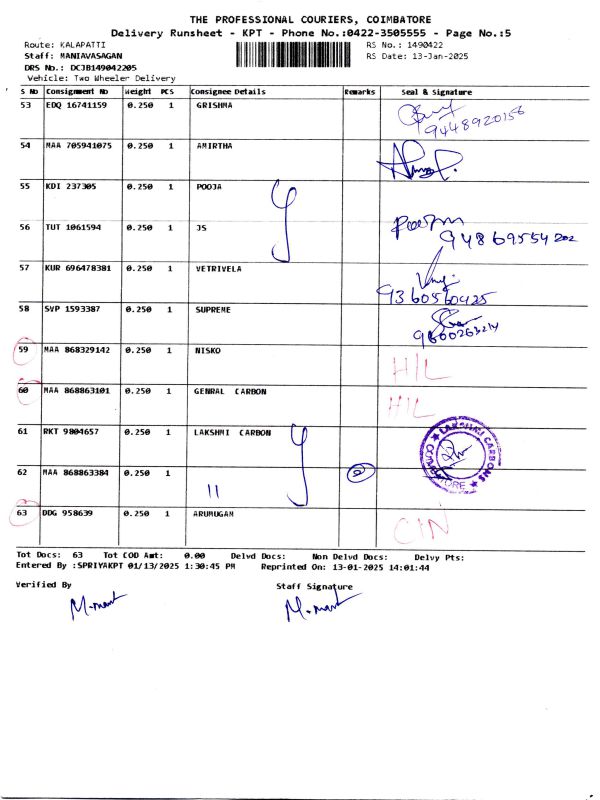 THE PROFESSIONAL COURIERS, COIMBATORE
Delivery Runsheet - KPT - Phone No.:0422-3505555 - Page No.:5
Route: KALAPATTI RS No.: 1490422
Staff: MANIAVASAGAN RS Date: 13-Jan-2025
DRS No.: DCJB149042205
Vehicle: Two Wheeler Delivery
S No Consignment No Weight PCS Consignee Details Remarks Seal & Signature
53 EDQ 16741159 0.250 1 GRISHMA
9448920156
54 MAA 705941075 0.250 1 AMIRTHA
55 KDI 237305 0.250 1 POOJA
56 TUT 1061594 0.250 1 JS
94869554202
57 KUR 696478381 0.250 1 VETRIVELA
9360560425
58 SVP 1593387 0.250 1 SUPREME
9600263214
59 MAA 868329142 0.250 1 NISKO H/L
60 MAA 868863101 0.250 1 GENRAL CARBON H/L
61 RKT 9804657 0.250 1 LAKSHMI CARBON
LAKSHMI CARBONS COIMBATORE
62 MAA 868863384 0.250 1 11 2
63 DDG 958639 0.250 1 ARUMUGAM CIN
Tot Docs: 63 Tot COD Amt: 0.00 Delvd Docs: Non Delvd Docs: Delvy Pts:
Entered By :SPRIYAKPT 01/13/2025 1:30:45 PM Reprinted On: 13-01-2025 14:01:44
Verified By Staff Signature